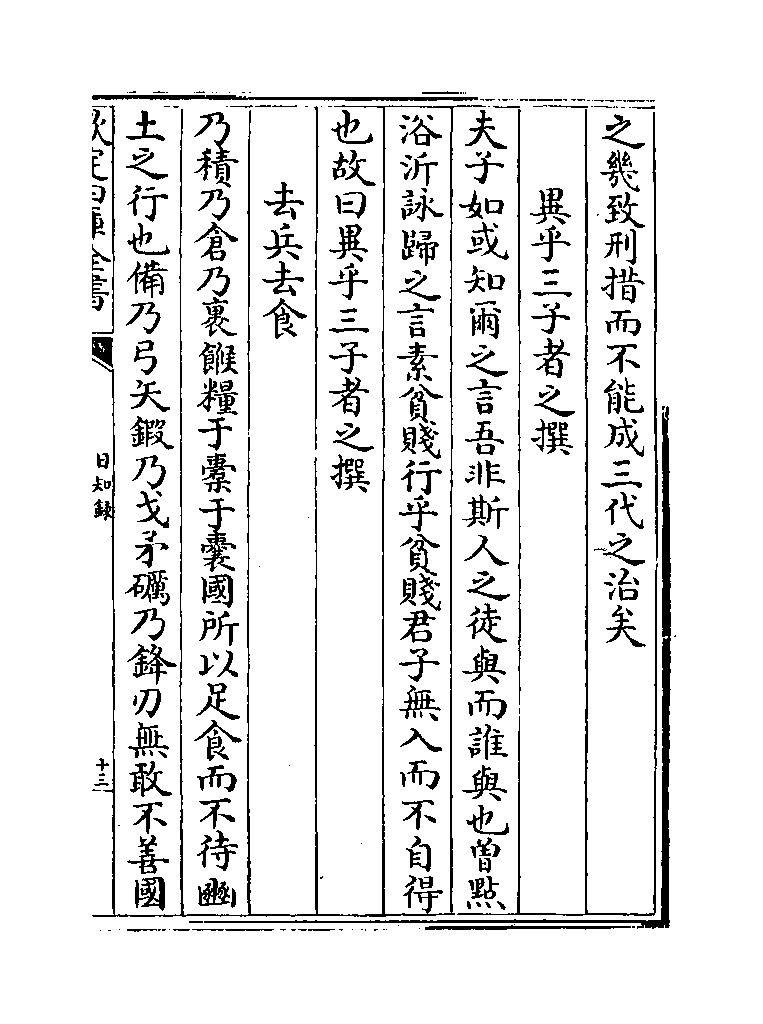 之幾致刑措而不能成三代之治矣
異乎三子者之撰
夫子如或知爾之言吾非斯人之徒與而誰與也曾點
浴沂詠歸之言素貧賤行乎貧賤君子無入而不自得
也故曰異乎三子者之撰
去兵去食
乃積乃倉乃裹餱糧于橐于囊國所以足食而不待豳
土之行也備乃弓矢鍛乃戈矛礪乃鋒刃無敢不善國
欽定四庫全書
日知錄
十三